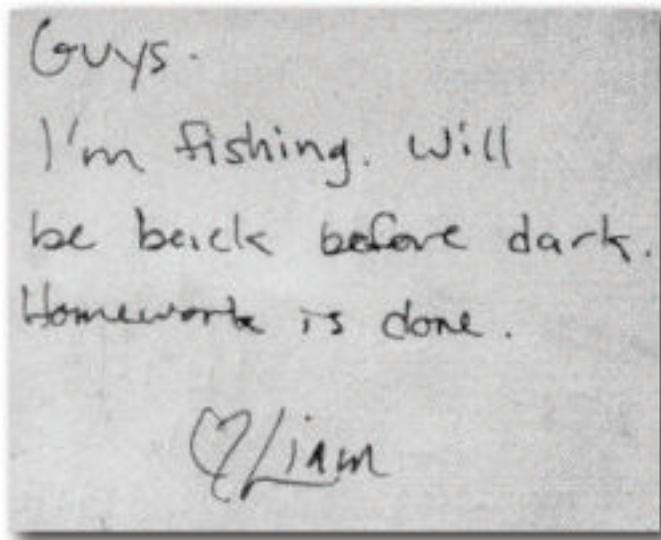 Guys.
I'm fishing. Will
be back before dark.
Homework is done.
♡ Liam